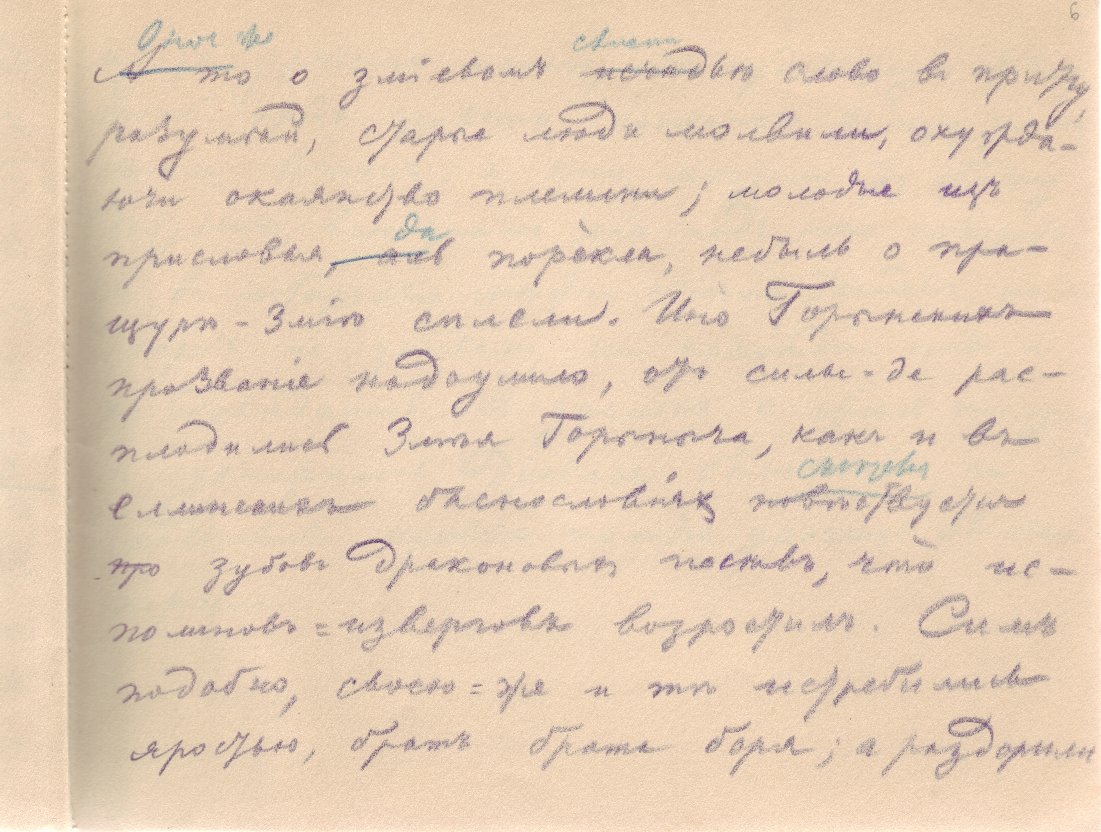 6
А то о зміевомъ исчадью слово въ притчу
разумѣй, старые люди молвили, охужда-
ючи окаянство племени; молодые изъ
присловья, да порекла, небыль о пра-
щурѣ-Змѣю сплели. Ино Горынскихъ
прозваніе надоумило, отъ силы-де рас-
плодились Змѣя Горыныча, какъ и въ
еллинскихъ баснословіяхъ повѣствуется
про зубовъ драконовыхъ посѣвъ, что ис-
полиновъ-изверговъ возрастилъ. Симъ
подобно, своею-же и тѣ истребились
яростью, братъ брата боря; а раздорили